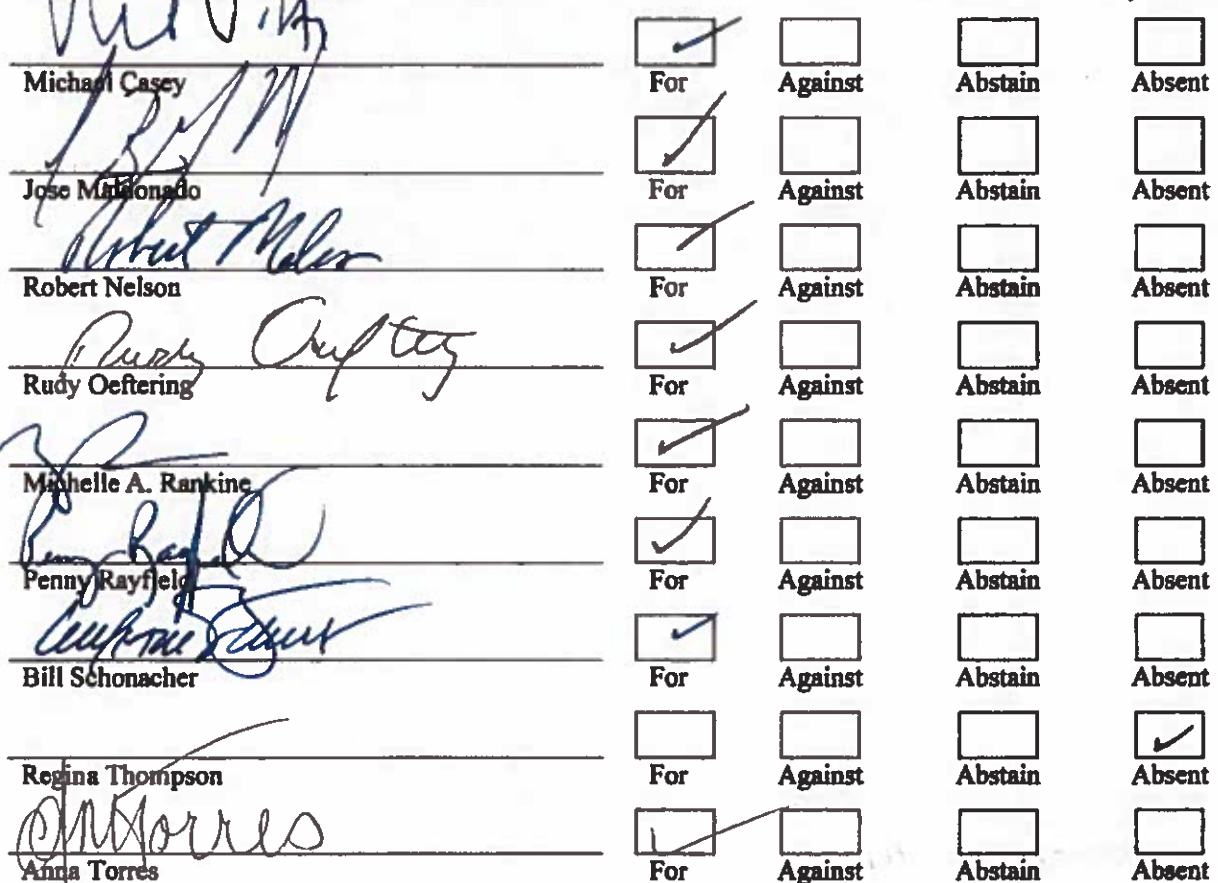 Michael Casey For Against Abstain Absent
Jose Maldonado For Against Abstain Absent
Robert Nelson
Robert Nelson For Against Abstain Absent
Rudy Oeftering
Rudy Oeftering For Against Abstain Absent
Michelle A. Rankine For Against Abstain Absent
Penny Rayfield
Penny Rayfield For Against Abstain Absent
Bill Schonacher For Against Abstain Absent
Regina Thompson For Against Abstain Absent
Torres
Anna Torres For Against Abstain Absent